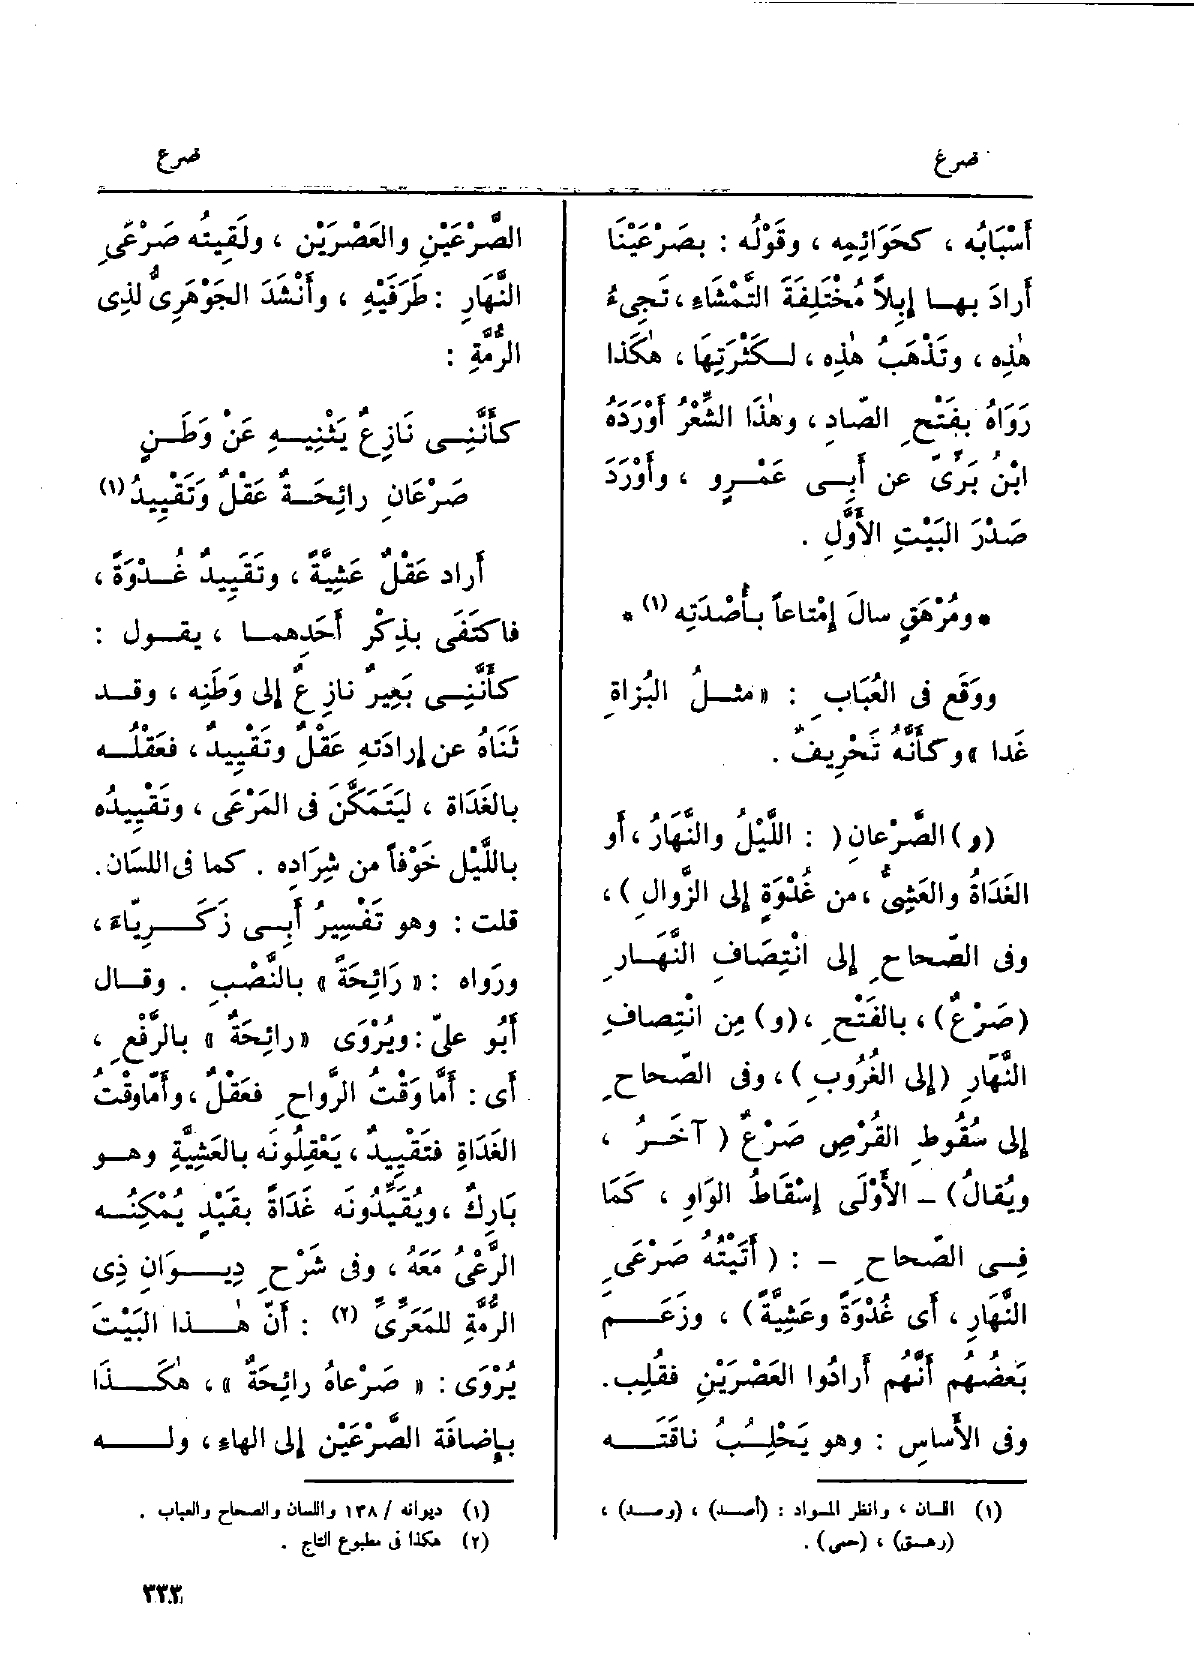 صرع
صرع
أَسْبَابُه ، كحَوَائِمِه ، وقَوْلُه : بصَرْعَيْنَا
أَرادَ بهـا إِبِلاً مُخْتَلِفَةَ التَّمْشَاءِ ، تَجِىءُ
هٰذِه ، وتَذْهَبُ هٰذِه ، لـكَثْرَتِهَا ، هٰكَذا
رَوَاهُ بفَتْحِ الصّادِ ، وهٰذَا الشِّعْرُ أَوْرَدَهُ
ابْنُ بَرِّىّ عن أَبِـى عَمْـرٍو ، وأَوْرَدَ
صَدْرَ البَيْتِ الأَوَّلِ .
* ومُرْهَقٍ سالَ إِمْتاعاً بـأُصْدَتِه (١) *
ووَقَع فى العُبَابِ : « مثـلُ البُزاةِ
غَدا » وكأَنَّهُ تَحْرِيفٌ .
(و) الصَّرْعانِ ( : اللَّيْلُ والنَّهَارُ ، أَو
الغَدَاةُ والعَشِىُّ ، من غُدْوَةٍ إلى الزَّوالِ ) ،
وفى الصّحاحِ إلى انْتِصَافِ النَّهَـارِ
(صَرْعٌ) ، بالفَتْحِ ، (و) مِن انْتِصافِ
النَّهَارِ (إلى الغُرُوبِ ) ، وفى الصّحاحِ
إلى سُقُوطِ القُرْصِ صَرْعٌ ( آخَـرُ ،
ويُقالُ) – الأَوْلَى إِسْقَاطُ الوَاوِ ، كَمَا
فِـى الصّحاحِ – : ( أَتَيْتُهُ صَرْعَىِ
النَّهارِ ، أَى غُدْوَةً وعَشِيَّةً ) ، وزَعَــم
بَعْضُهُم أَنَّهُم أَرادُوا العَصْرَيْنِ فقُلِب.
وفى الأَساسِ : وهو يَحْلِـبُ ناقَتَــه
(١) اللسان ، وانظر المواد : (أصد) ، (وصد) ،
(رهق) ، (حمى) .
الصَّرْعَيْنِ والعَصْرَيْن ، ولَقِيتُه صَرْعَىِ
النَّهَارِ : طَرَفَيْهِ ، وأَنْشَدَ الجَوْهَرِىُّ لذِى
الرُّمَّةِ :
كأَنَّنِـى نَازِعٌ يَثْنِيـهِ عَنْ وَطَـنٍ
صَرْعَانِ رائِحَـةٌ عَقْلٌ وَتَقْيِيدُ (١)
أَراد عَقْلٌ عَشِيَّةً ، وتَقَيِيدٌ غُـدْوَةً ،
فاكتَفَى بذِكْرِ أَحَدِهمـا ، يقـول :
كأَنَّنِـى بَعِيرٌ نازِعٌ إلى وَطَنِه ، وقـد
ثَنَاهُ عن إرادَتهِ عَقْلٌ وتَقْيِيدٌ ، فعَقْلُـه
بالغَدَاة ، ليَتَمَكَّنَ فى المَرْعَى ، وتَقْيِيدُه
باللَّيْل خَوْفاً من شِرَادِه . كما فى اللسَان.
قلت : وهو تَفْسِيرُ أَبِـى زَكَــرِيّاءَ ،
ورَواه : « رَائِحَةً » بالنَّصْبِ . وقـال
أَبُو علىّ : ويُرْوَى « رائِحَةٌ » بالرَّفْعِ ،
أَى : أَمَّا وَقْتُ الرَّواحِ فعَقْلٌ ، وأَمّا وقْتُ
الغَدَاةِ فتَقْيِيدٌ ، يَعْقِلُونَه بالعَشِيَّةِ وهـو
بَارِكٌ ، ويُقَيِّدُونَه غَدَاةً بقَيْدٍ يُمْكِنُـه
الرَّعْىُ مَعَهُ ، وفى شَرْحِ دِيــوَانِ ذِى
الرُّمَّةِ للمَعَرِّىِّ (٢) : أَنّ هٰــذا البَيْتَ
يُرْوَى : « صَرْعاهُ رائِحَةٌ » ، هٰكَــذَا
بـإضافَة الصَّرْعَيْن إلى الهاءِ ، ولــه
(١) ديوانه /١٣٨ واللسان والصحاح والعباب .
(٢) هكذا فى مطبوع التاج .
٣٣٣